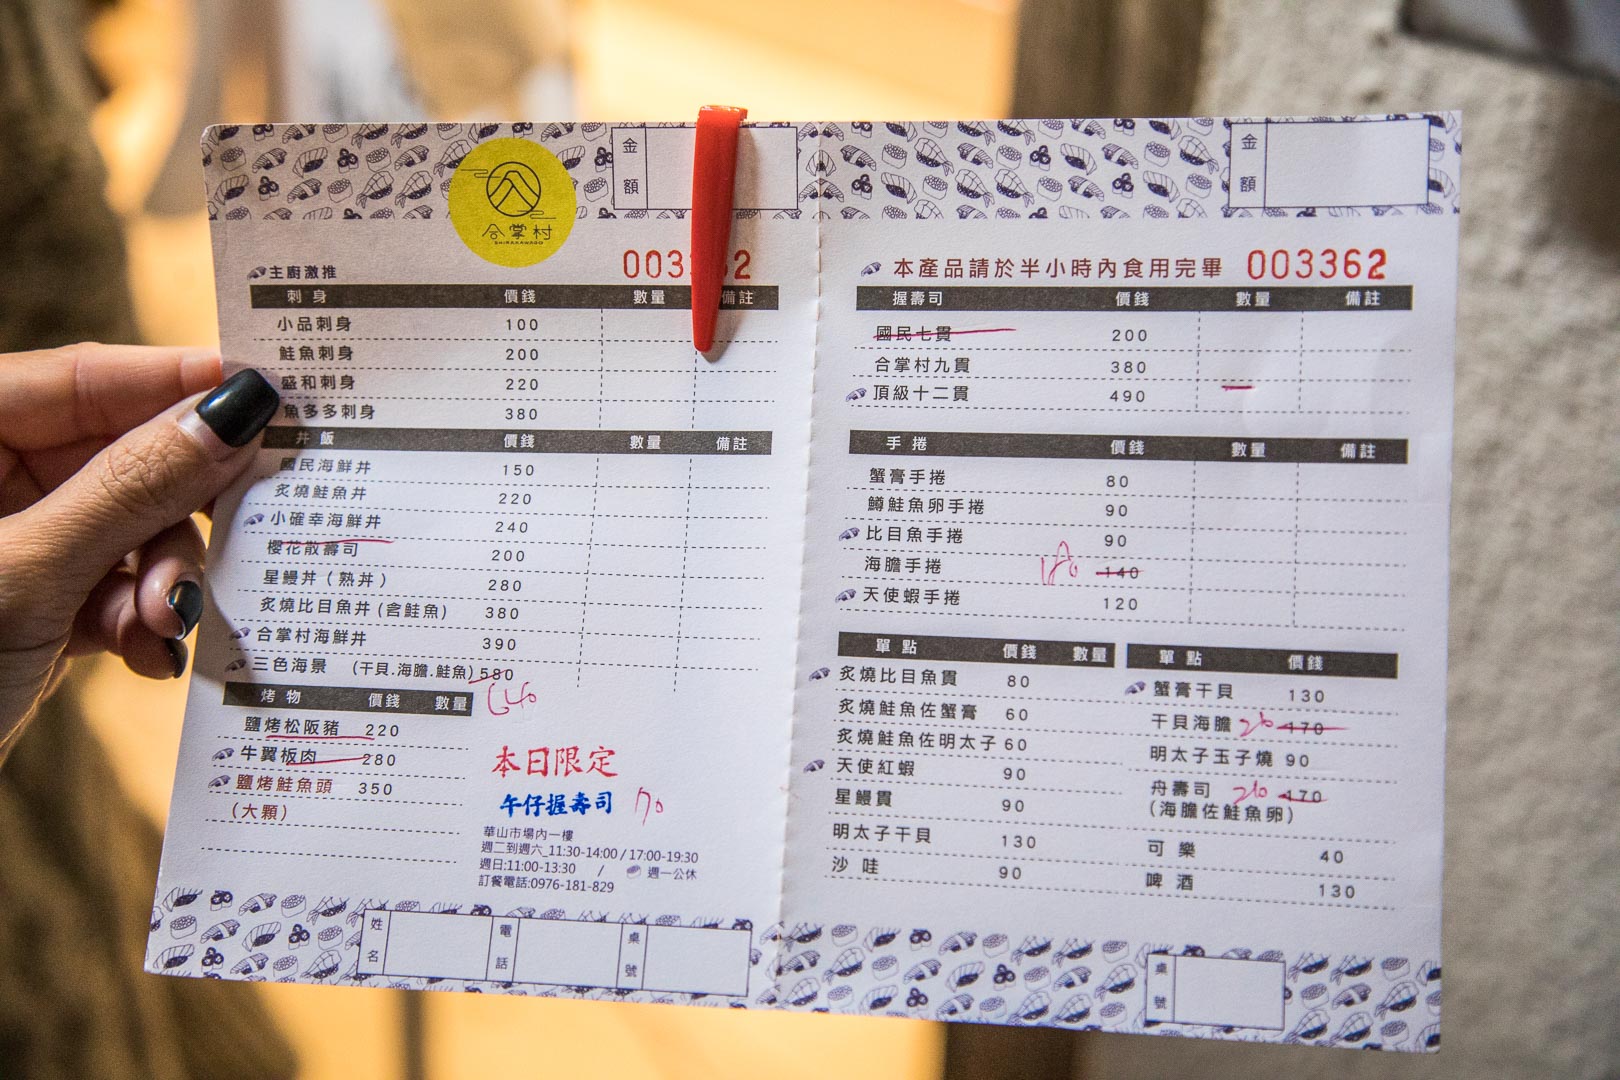 金額
合掌村
SHIRAKAWAGO
主廚激推
刺身 價錢 數量 備註
小品刺身 100
鮭魚刺身 200
盛和刺身 220
魚多多刺身 380
丼飯 價錢 數量 備註
國民海鮮丼 150
炙燒鮭魚丼 220
小確幸海鮮丼 240
櫻花散壽司 200
星鰻丼(熟丼) 280
炙燒比目魚丼(含鮭魚) 380
合掌村海鮮丼 390
三色海景 (干貝.海膽.鮭魚) 580
640
烤物 價錢 數量
鹽烤松阪豬 220
牛翼板肉 280
鹽烤鮭魚頭 350
(大顆)
本日限定
午仔握壽司 70
華山市場內一樓
週二到週六_11:30-14:00 / 17:00-19:30
週日:11:00-13:30 / 週一公休
訂餐電話:0976-181-829
姓名 電話 桌號
金額
本產品請於半小時內食用完畢 003362
握壽司 價錢 數量 備註
國民七貫 200
合掌村九貫 380
頂級十二貫 490
手捲 價錢 數量 備註
蟹膏手捲 80
鱒鮭魚卵手捲 90
比目魚手捲 90
海膽手捲 180 140
天使蝦手捲 120
單點 價錢 數量
炙燒比目魚貫 80
炙燒鮭魚佐蟹膏 60
炙燒鮭魚佐明太子 60
天使紅蝦 90
星鰻貫 90
明太子干貝 130
沙哇 90
單點 價錢
蟹膏干貝 130
干貝海膽 210 170
明太子玉子燒 90
舟壽司 210 170
(海膽佐鮭魚卵)
可樂 40
啤酒 130
桌號